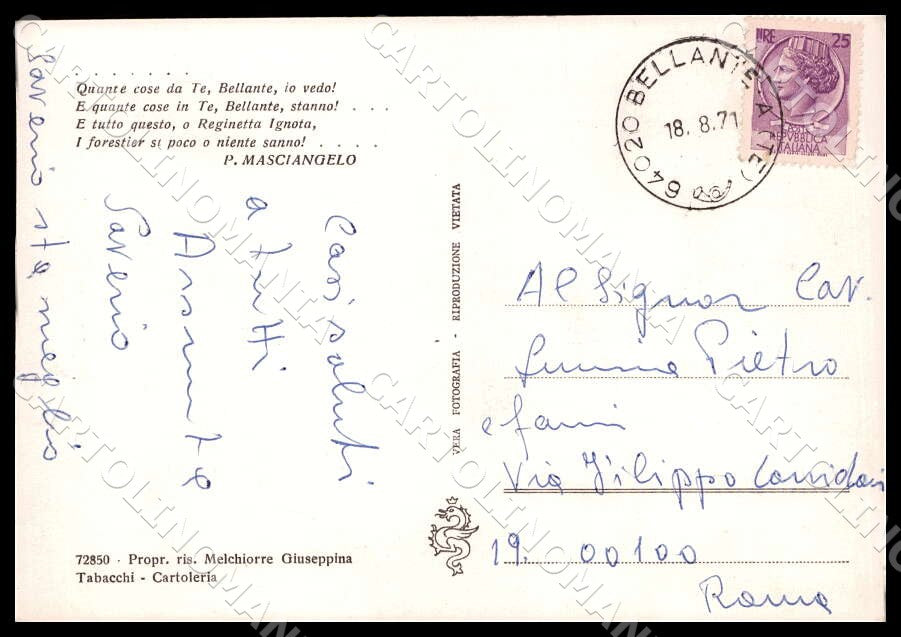 . . . . . . .
Quante cose da Te, Bellante, io vedo!
E quante cose in Te, Bellante, stanno! . . .
E tutto questo, o Reginetta Ignota,
I forestier si poco o niente sanno! . . . . .
P. MASCIANGELO
Cari saluti
a tutti
Assunta
Saverio
Saverio sta meglio
72850 - Propr. ris. Melchiorre Giuseppina
Tabacchi - Cartoleria
VERA FOTOGRAFIA - RIPRODUZIONE VIETATA
64020 BELLANTE A (TE)
18. 8. 71
LIRE 25
REPUBBLICA
ITALIANA
Al Signor Cav.
Pietro
e fami
Via Filippo
19. 00100
Roma
CARTOLINOMANIA